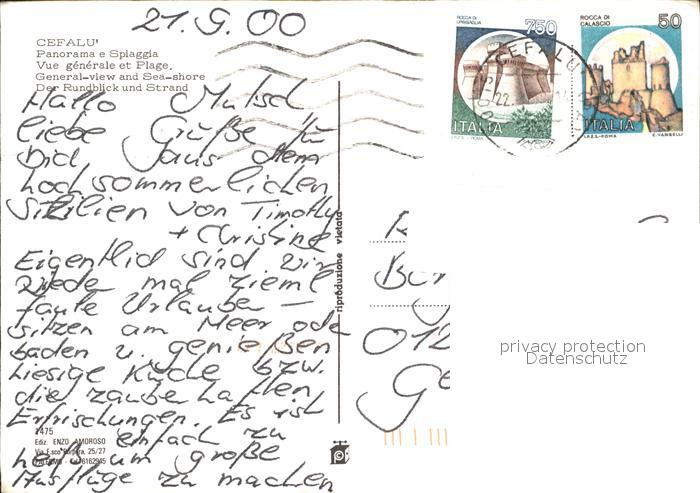 21.9.00
CEFALU'
Panorama e Spiaggia
Vue générale et Plage.
General-view and Sea-shore
Der Rundblick und Strand
Hallo Mutsch
liebe Grüße für
Dich aus dem
hochsommerlichen
Sizilien von Timothy
+ Christine
Eigentlich sind wir
wieder mal zieml.
faule Urlauber –
sitzen am Meer oder
baden u. genießen
hiesige Küche bzw.
die zauberhaften
Erfrischungen. Es ist
einfach zu
heiß um große
Ausflüge zu machen
1475
Ediz. ENZO AMOROSO
25/27
riproduzione vietata
ROCCA DI
URBISAGLIA
750
ITALIA
I.P.Z.S. - ROMA
ROCCA DI
CALASCIO
50
ITALIA
I.P.Z.S. - ROMA E. VANGELLI
CEFALU
22
012
Ge
privacy protection
Datenschutz